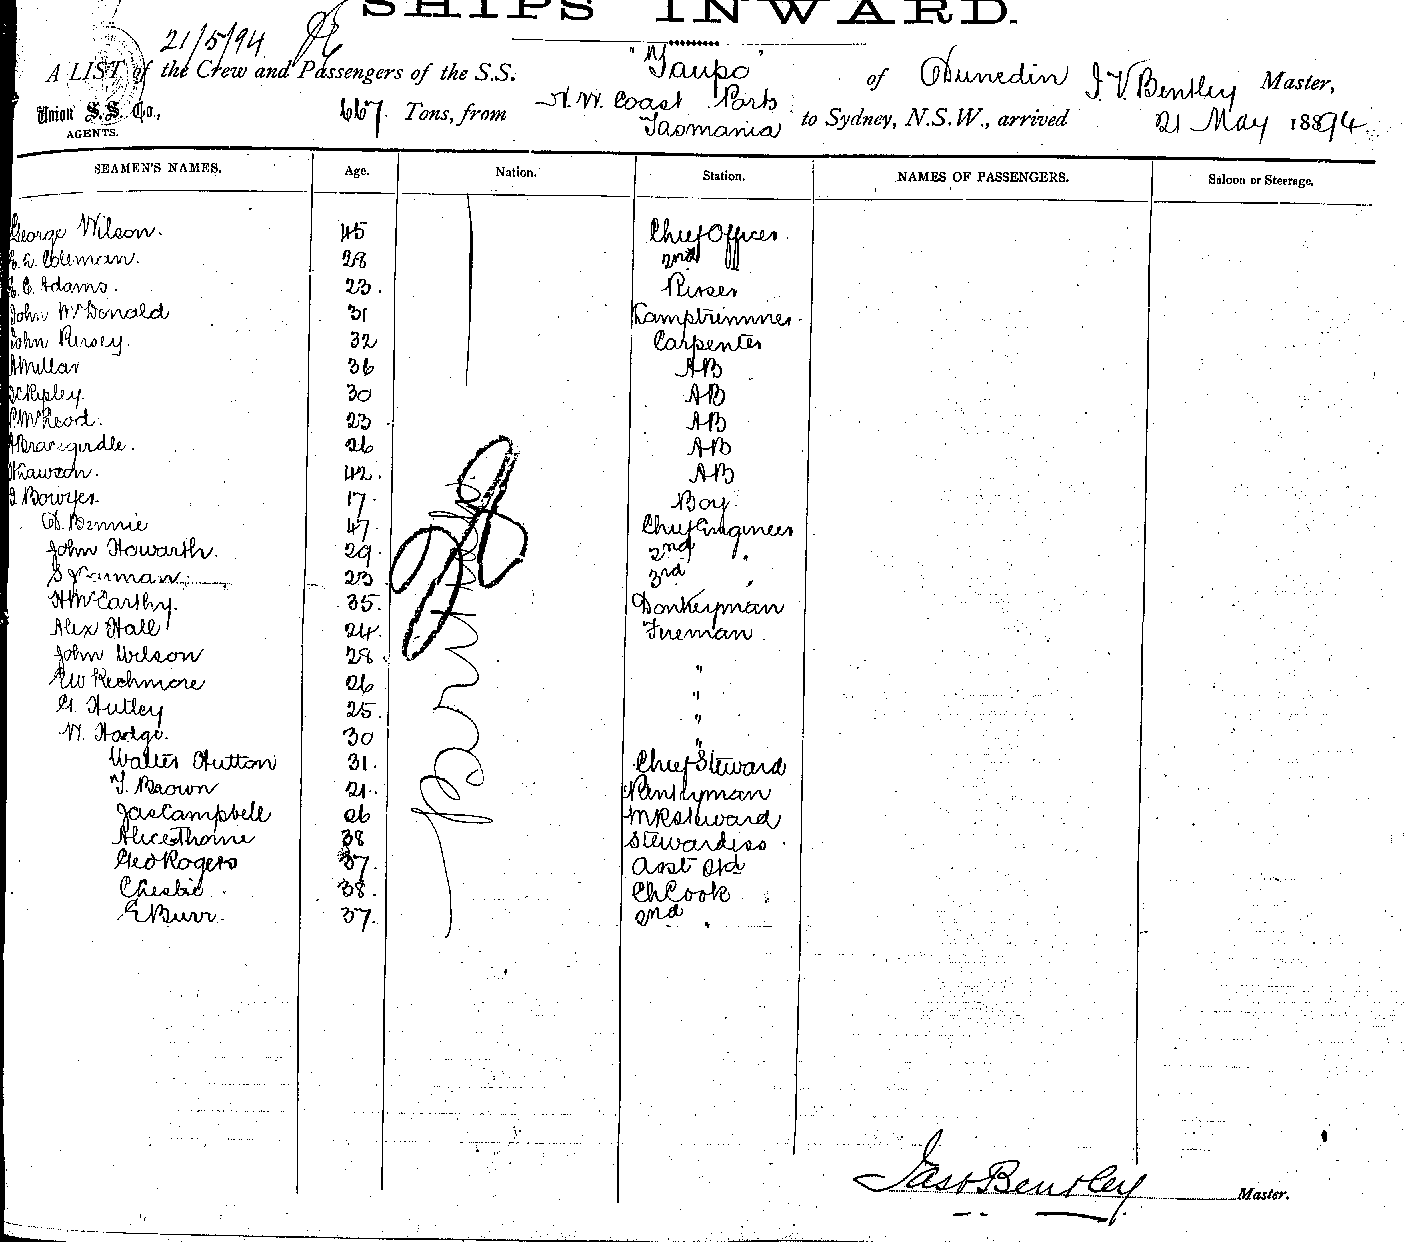 SHIPS INWARD.
21/5/94
A LIST of the Crew and Passengers of the S.S. "Taupo" of Dunedin J. V. Bentley Master,
Union S.S. Co., AGENTS. 667 Tons, from N. W. Coast Ports Tasmania to Sydney, N.S.W., arrived 21 May 1894
SEAMEN'S NAMES. Age. Nation. Station. NAMES OF PASSENGERS. Saloon or Steerage.
George Wilson. 45 Chief Officer
Coleman. 28 2nd "
C. Adams. 23. Purser
John McDonald 31 Lamptrimmer.
John Pursey. 32 Carpenter
Millar 36 AB
Ripley 30 AB
McLeod. 23 AB
Bracegirdle. 26 AB
Lawson. 42. AB
Bowyer. 17. Boy.
D. Bennie 47 Chief Engineer
John Howarth. 29. 2nd "
S 23 3rd "
H McCarthy. 35. Donkeyman
Alex Hall 24. Fireman
John Wilson 28 "
26 "
G. Hutley 25. "
W. Hodge. 30 "
Walter Hutton 31. Chief Steward
T. Brown 21. Pantryman
Jas Campbell 26 Steward
Alice Thorne 38 Stewardess
Geo Rogers 37. Asst
38. Ch Cook
E Burr. 37. 2nd "
Jas V Bentley Master.